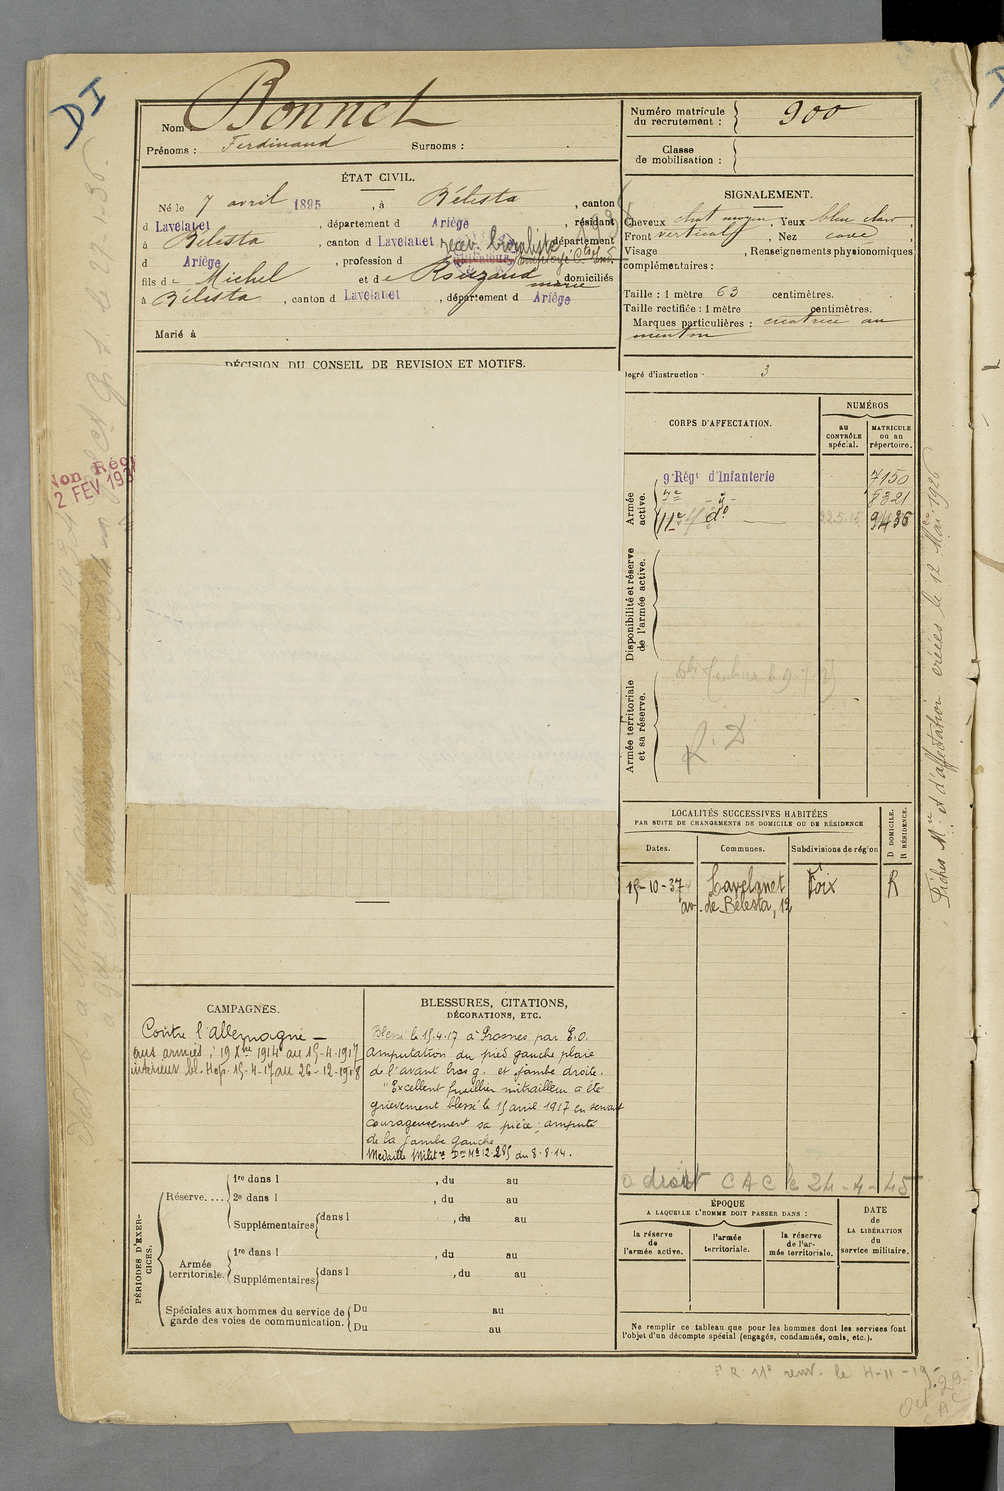 DI
Nom : Bonnet
Prénoms : Ferdinand Surnoms :
Numéro matricule du recrutement : 900
Classe de mobilisation :
ÉTAT CIVIL.
Né le 7 avril 1895, à Bélesta, canton
d Lavelanet, département d Ariège, résidant
à Bélesta, canton d Lavelanet, département
d Ariège, profession d
fils de Michel et de Rouzaud marie domiciliés
à Bélesta, canton d Lavelanet, département d Ariège
Marié à
SIGNALEMENT.
Cheveux chat moyen, Yeux bleu clair
Front vertical, Nez cave,
Visage, Renseignements physionomiques
complémentaires :
Taille : 1 mètre 63 centimètres.
Taille rectifiée : 1 mètre centimètres.
Marques particulières : cicatrice au
menton
Degré d'instruction 3
DÉCISION DU CONSEIL DE REVISION ET MOTIFS.
CORPS D'AFFECTATION.
NUMÉROS
au CONTRÔLE spécial.
MATRICULE ou au répertoire.
Armée active.
9e Régt d'Infanterie 7150
7e - d° - 8321
11e d° 9436
Disponibilité et réserve de l'armée active.
Armée territoriale et sa réserve.
R. D
Non Régi
2 FEV 193
Fiches Mle et d'affectation créées le 12 Mai 1926
LOCALITÉS SUCCESSIVES HABITÉES
PAR SUITE DE CHANGEMENTS DE DOMICILE OU DE RÉSIDENCE
D DOMICILE.
R RÉSIDENCE.
Dates. Communes. Subdivisions de région
15-10-37 Lavelanet Foix R
av. de Bélesta, 12
a droit CAC le 24-4-45
CAMPAGNES.
Contre l'allemagne
aux armées : 19 Xbre 1914 au 15-4-1917
intérieur bl. Hop. 15-4-17 au 26-12-1918
BLESSURES, CITATIONS,
DÉCORATIONS, ETC.
Blessé le 15.4.17 à Prosnes par E.O.
amputation du pied gauche plaie
de l'avant bras g. et jambe droite.
"Excellent fusillier mitrailleur a été
grièvement blessé le 15 avril 1917 en servant
courageusement sa pièce ; amputé
de la jambe gauche
Médaille Militre
PÉRIODES D'EXERCICES.
Réserve....
1re dans l , du au
2e dans l , du au
Supplémentaires dans l , du au
Armée territoriale.
1re dans l , du au
Supplémentaires dans l , du au
Spéciales aux hommes du service de garde des voies de communication.
Du au
Du au
ÉPOQUE
A LAQUELLE L'HOMME DOIT PASSER DANS :
la réserve de l'armée active.
l'armée territoriale.
la réserve de l'armée territoriale.
DATE de LA LIBÉRATION du service militaire.
Ne remplir ce tableau que pour les hommes dont les services font
l'objet d'un décompte spécial (engagés, condamnés, omis, etc.).
CAC